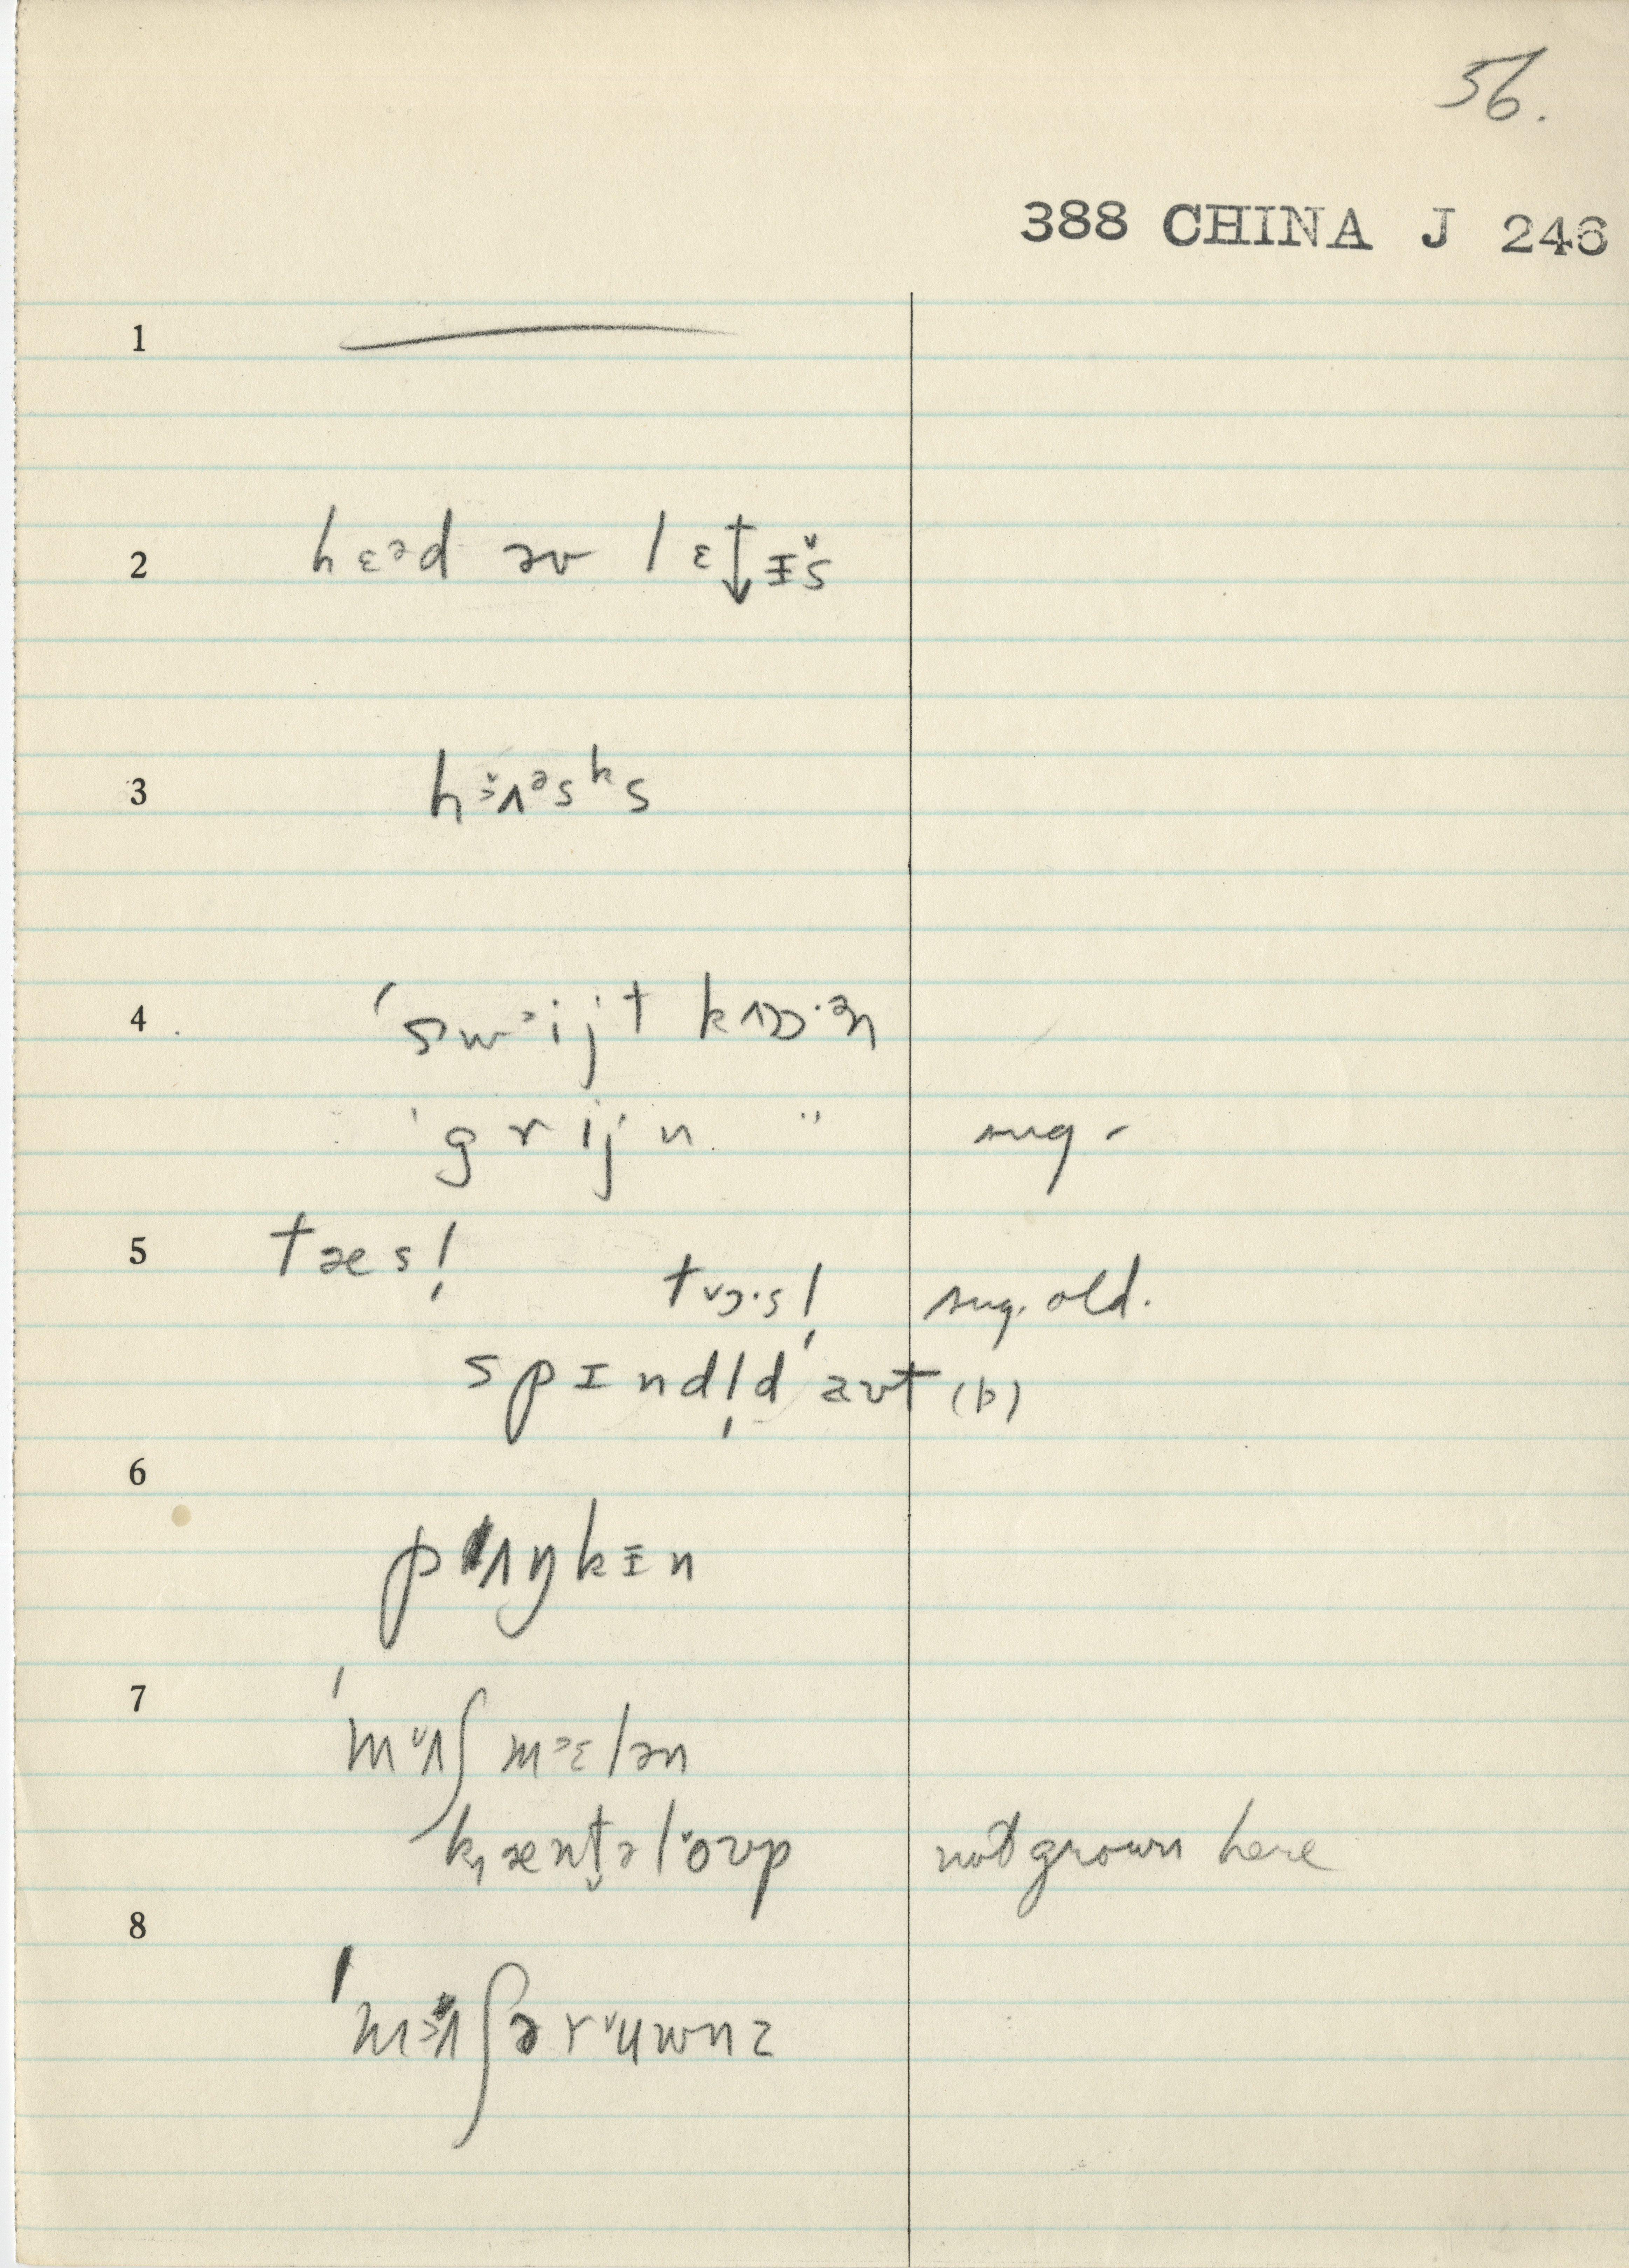 56.
388 CHINA J 246
1
2 hɛəd əv lɛt↓ɨ̌s
3 hɜ̌ʌəsks
4 'swᵊijt kʌɒ·ɜn
'grijn " sug -
5 tæs!̩
tᵛɔ·s!̩ sug. old.
spɪndl̩d aʊt (b)
6
pʌŋkɨn
7 'mʌ̌ʃmɛlən
kæntəlŏʊp not grown here
8
'mɜʌʃərʉ̌wnz